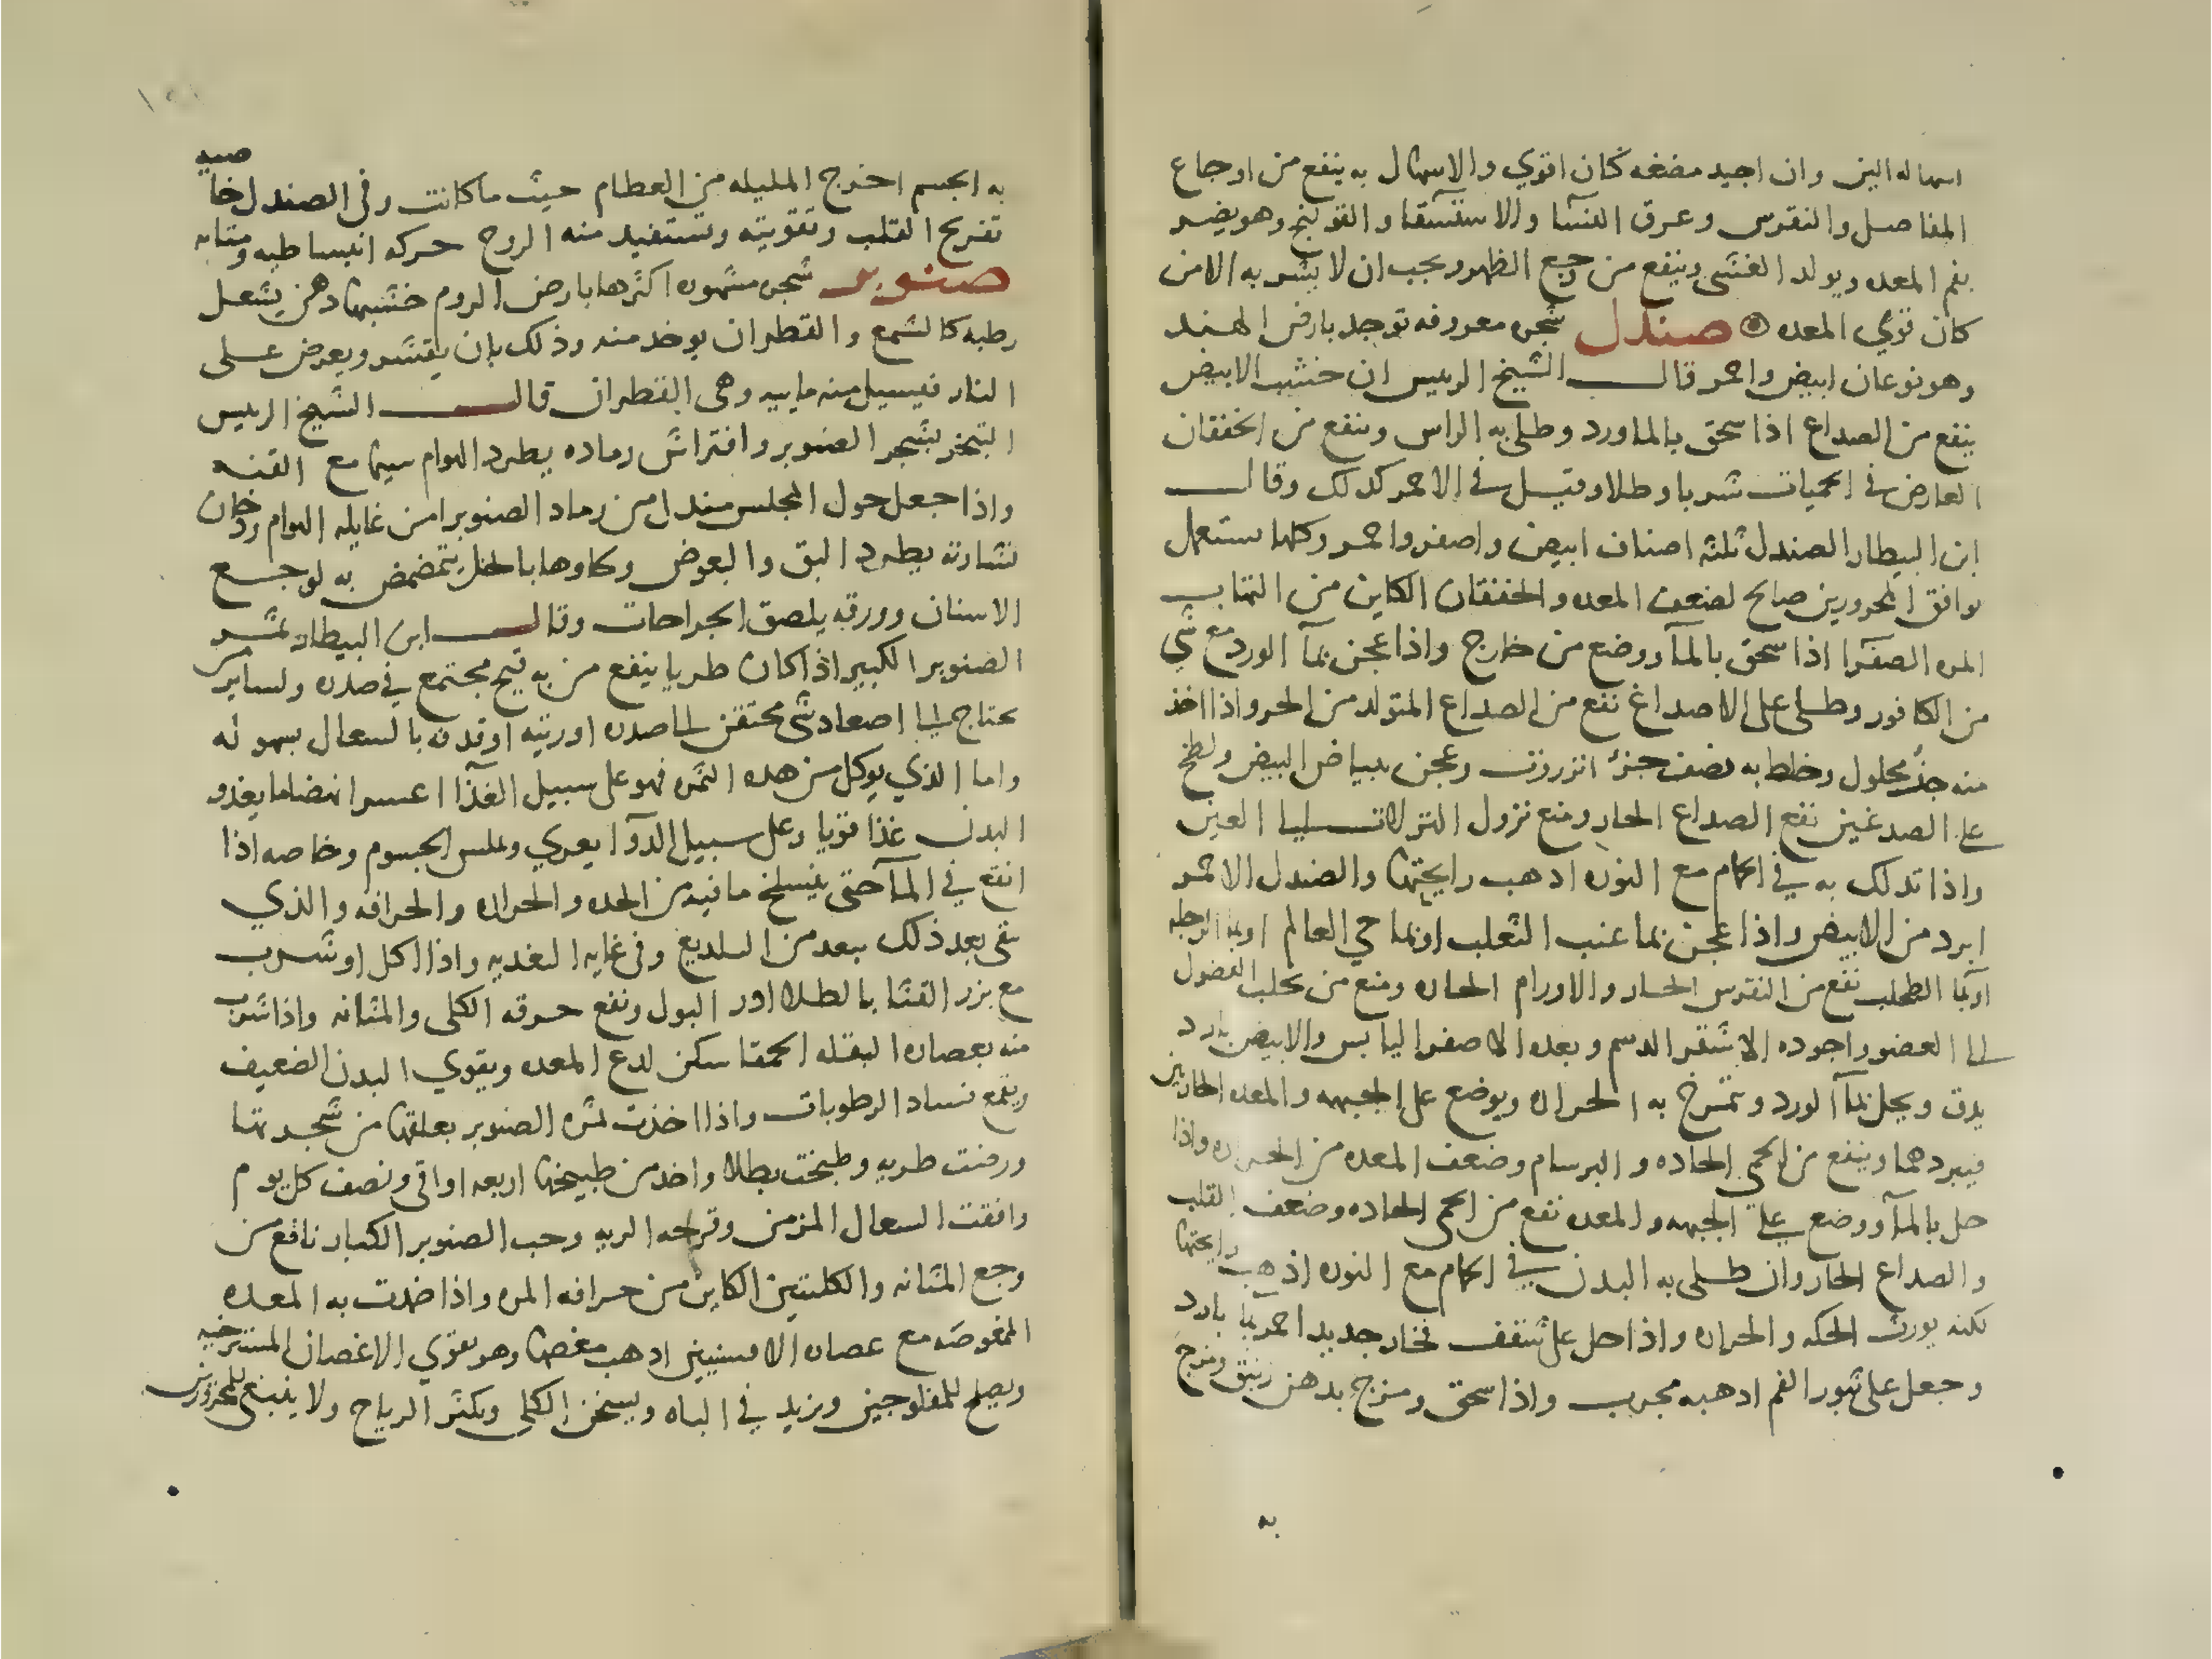 اسهاله الين وان اجيد مضغه كان اقوي والاسهال به ينفع من اوجاع
المفاصل والنقرس وعرق النسا والاستسقا والقولنج وهو يضر
بفم المعده ويولد الغشى وينفع من وجع الظهر ويجب ان لا يشربه الا من
كان قوي المعده ۞ صندل شجره معروفه توجد بارض الهند
وهو نوعان ابيض واحمر قال الشيخ الرييس ان خشب الابيض
ينفع من الصداع اذا سحق بالماورد وطلى به الراس وينفع من الخفقان
العارض في الحميات شربا وطلا وقيل في الاحمر كدلك وقال
ابن البيطار الصندل ثلثه اصناف ابيض واصفر واحمر وكلها ستعمل
يوافق المحرورين صالح لضعف المعده والخفقان الكاين من التهاب
المره الصفرا اذا سحق بالمآ ووضع من خارج واذا عجن بمآ الورد مع شي
من الكافور وطلى على الاصداغ نفع من الصداع المتولد من الحر واذا اخذ
منه جزؤ محلول وخلط به نصف جزؤ انزروت وعجن ببياض البيض ولطخ
على الصدغين نفع الصداع الحار ومنع نزول النزلات الى العين
واذا تدلك به في الحمام مع النوره ادهب رايحتها والصندل الاحمر
ابرد من الابيض واذا عجن بما عنب الثعلب او بما حي العالم او بما الرجله
او بمآ الطحلب نفع من النقرس الحار والاورام الحاره ومنع من تحلب الفضول
الى العضو واجوده الاشقر الدسم وبعده الاصفر اليابس والابيض بارد
يدق ويحل بمآ الورد وتمرخ به الحراره ويوضع على الجبهه والمعده الحارتين
فيبردهما وينفع من الحمى الحاده والبرسام وضعف المعده من الحراره واذا
حل بالمآ ووضع على الجبهه والمعده نفع من الحمى الحاده وضعف القلب
والصداع الحار وان طلى به البدن في الحمام مع النوره اذهب رايحتها
لكنه يورث الحكه والحراره واذا حل على شقف فخار جديد احمر بما بارد
وجعل على ثبور الفم ادهبه مجرب واذا سحق ومزج بدهن زنبق ومزج
به
صيد
به الجسم اخرج المليله من العظام حيث ما كانت وفى الصندل خا
تفريح القلب وتقويته وتستفيد منه الروح حركه انبساطيه ومتانه
صنوبر شجره مشهوره اكثرها بارض الروم خشبها دهن يشعل
رطبه كالشمع والقطران يوخد منه وذلك بان يقشر ويعرض على
النار فيسيل منه ماييه وهى القطران قال الشيخ الرييس
التبخر بشجر الصنوبر وافتراش رماده يطرد الهوام سيما مع القنه
واذا جعل حول المجلس مندل من رماد الصنوبر امن غايله الهوام ودخان
نشارته يطرد البق والبعوض وكاوها بالخل يتمضمض به لوجع
الاسنان وورقه يلصق الجراحات وقال ابن البيطار ثمر
الصنوبر الكبير اذا كان طريا ينفع من به قيح مجتمع في صدره ولساير من
يحتاج الى اصعاد شى محتقن الى صدره او ريته او قدفه بالسعال بسهوله
واما الذي يوكل من هده الثمره فهو على سبيل الغذآ اعسر انهضاما يغذو
البدن غذا قويا وعلى سبيل الدوآ يعري ويملس الجسوم وخاصه اذا
انقع في المآ حتى ينسلخ ما فيه من الحده والحراره والحرافه والذي
بقى بعد ذلك ببعد من التلديع وفى غايه التغديه واذا اكل او شرب
مع بزر القثا بالطلا ادر البول ونفع حرقه الكلى والمثانه واذا شرب
منه بعصاره البقله الحمقا سكن لدع المعده ويقوي البدن الضعيف
ويقمع فساد الرطوبات واذا اخذت ثمره الصنوبر بعلقها من شجرتها
ورضت طريه وطبخت بطلا واخد من طبيخها اربعه اواقى ونصف كل يوم
وافقت السعال المزمن وقرحه الريه وحب الصنوبر الكبار نافع من
وجع المثانه والكليتين الكاين من حرافه المره واذا ضمدت به المعده
الممغوصه مع عصاره الافسنتين ادهب مغصها وهو يقوي الاغصان المسترخيه
ويصلح للمفلوجين ويزيد في الباه ويسخن الكلى ويكثر الرياح ولا ينبغى للمحرورين